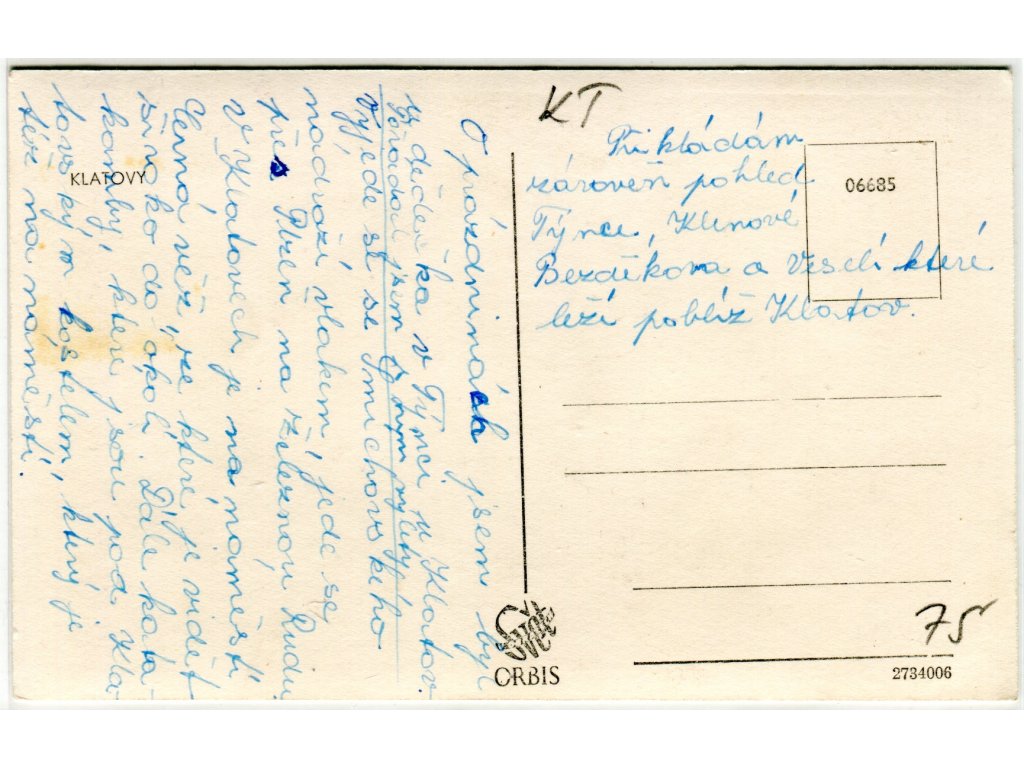 O prázdninách jsem byl
u dědečka v Týnci u Klatov.
Pořádal jsem výlety
Vyjede se se Smíchovského
nádraží vlakem, jede se
přes Plzen na železnou Rudu.
V Klatovech je na náměstí
Černá věž, ze které je vidět
široko do okolí. Dále kata-
komby, které jsou pod Kla-
tovským kostelem, který je
též na náměstí.
KLATOVY
KT
Přikládám
zároveň pohled
Týnce, Klenové
Bezděkova a Veselí které
leží poblíž Klatov.
06685
ORBIS
75
2734006